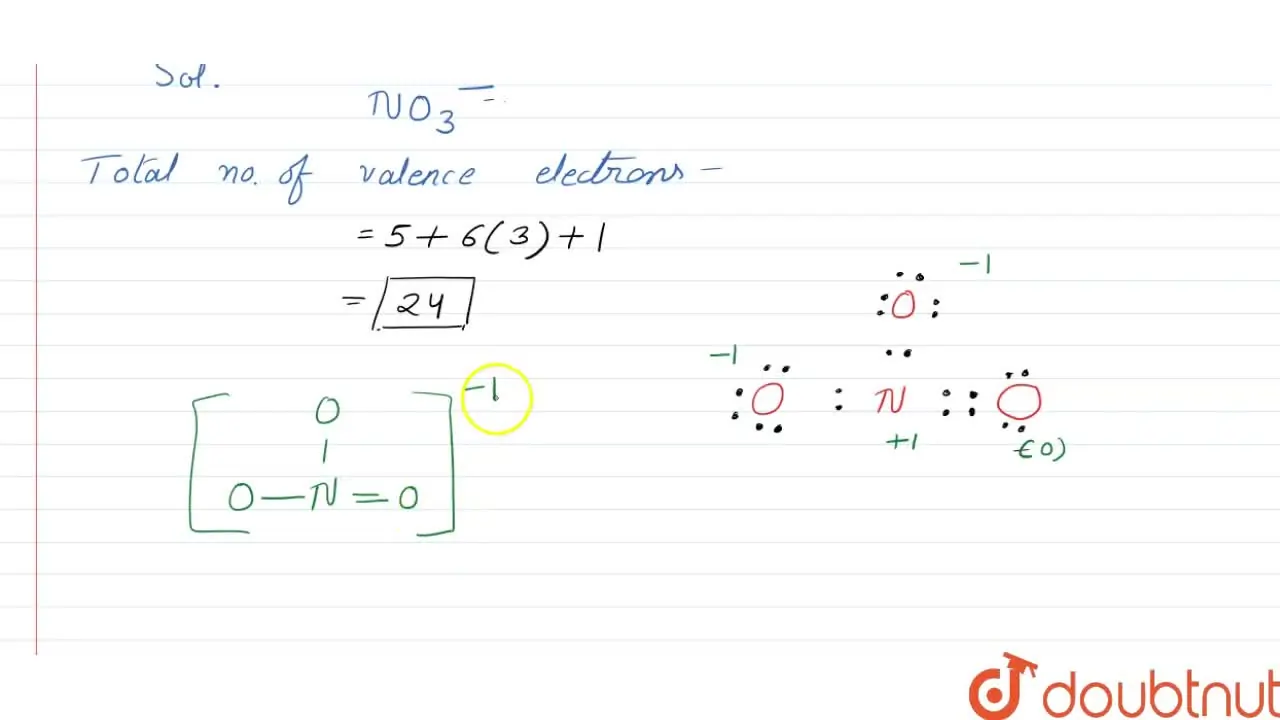 Sol.
NO3–
Total no. of valence electrons –
= 5 + 6(3) + 1
= 24
–1
O
–1
O N O
+1 (0)
–1
O
|
O — N = O
doubtnut